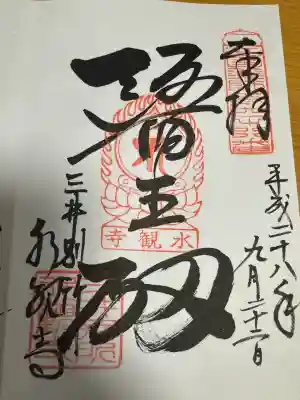 奉拝
平成二十八年
九月二十二日
醫王殿
水観寺
三井別所
水観寺